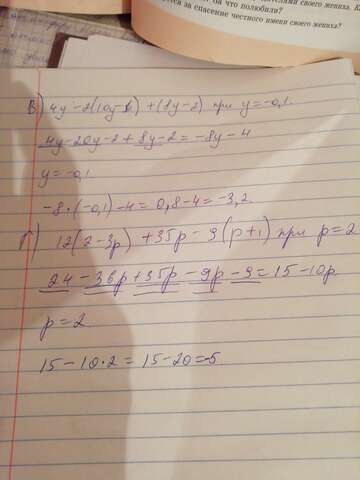 своего жениха. К
он что полюбили?
за спасение честного имени своего жениха?
в) 4y - 2(10y-1) + (8y-2) при y=-0,1.
4y-20y-2+8y-2=-8y-4
y=-0,1
-8·(-0,1)-4=0,8-4=-3,2.
г) 12(2-3p) +35p - 9(p+1) при p=2
24-36p+35p-9p-9=15-10p
p=2
15-10·2=15-20=-5